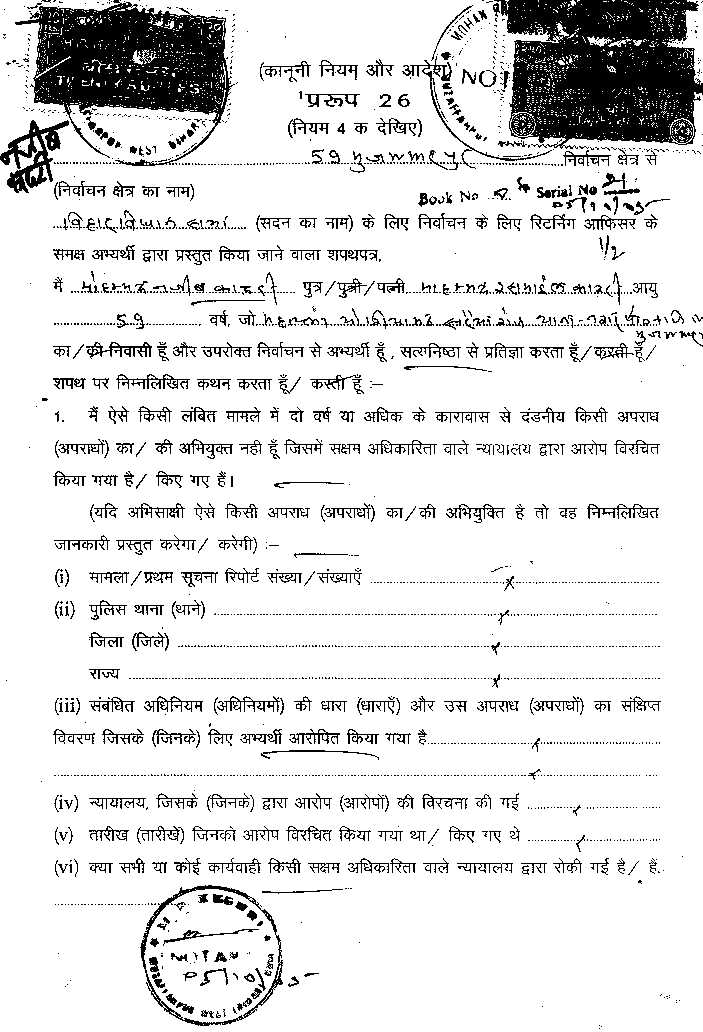 (कानूनी नियम और आदेश)
NO
प्ररूप 26
(नियम 4 क देखिए)
59 मुजफ्फरपुर निर्वाचन क्षेत्र से
(निर्वाचन क्षेत्र का नाम)
Book No Serial No 21
05/10/05
बिहार विधान सभा (सदन का नाम) के लिए निर्वाचन के लिए रिटर्निंग आफिसर के
1/2
समक्ष अभ्यर्थी द्वारा प्रस्तुत किया जाने वाला शपथपत्र,
मैं पुत्र/पुत्री/पत्नी आयु
59 वर्ष, जो
का/की निवासी हूँ और उपरोक्त निर्वाचन से अभ्यर्थी हूँ, सत्यनिष्ठा से प्रतिज्ञा करता हूँ/करती हूँ/
शपथ पर निम्नलिखित कथन करता हूँ/ करती हूँ :–
1. मैं ऐसे किसी लंबित मामले में दो वर्ष या अधिक के कारावास से दंडनीय किसी अपराध
(अपराधों) का/ की अभियुक्त नही हूँ जिसमें सक्षम अधिकारिता वाले न्यायालय द्वारा आरोप विरचित
किया गया है/ किए गए हैं।
(यदि अभिसाक्षी ऐसे किसी अपराध (अपराधों) का/की अभियुक्ति है तो वह निम्नलिखित
जानकारी प्रस्तुत करेगा/ करेगी) :–
(i) मामला/प्रथम सूचना रिपोर्ट संख्या/संख्याएँ x
(ii) पुलिस थाना (थाने) x
जिला (जिले) x
राज्य x
(iii) संबंधित अधिनियम (अधिनियमों) की धारा (धाराएँ) और उस अपराध (अपराधों) का संक्षिप्त
विवरण जिसके (जिनके) लिए अभ्यर्थी आरोपित किया गया है x
x
(iv) न्यायालय, जिसके (जिनके) द्वारा आरोप (आरोपों) की विरचना की गई x
(v) तारीख (तारीखें) जिनको आरोप विरचित किया गया था/ किए गए थे x
(vi) क्या सभी या कोई कार्यवाही किसी सक्षम अधिकारिता वाले न्यायालय द्वारा रोकी गई है/ हैं.
05/10/05